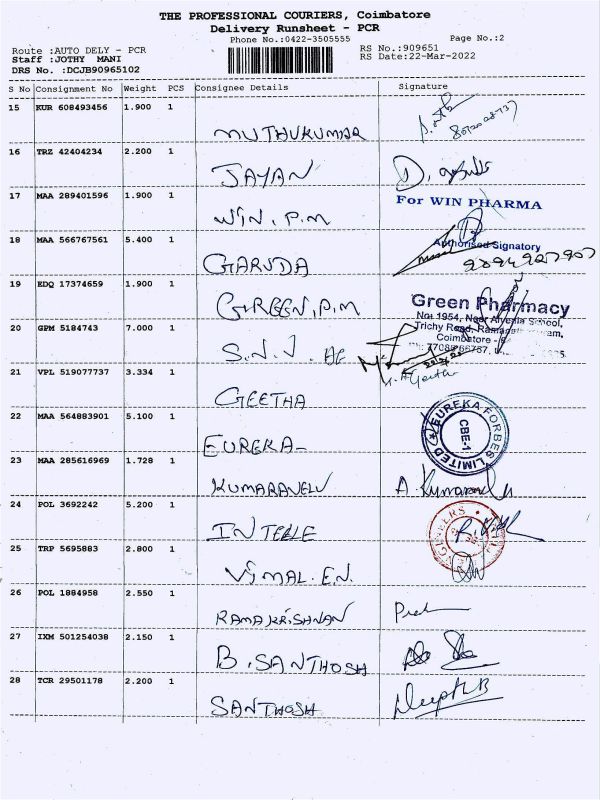 THE PROFESSIONAL COURIERS, Coimbatore
Delivery Runsheet - PCR
Phone No.:0422-3505555
Page No.:2
Route :AUTO DELY - PCR
RS No.:909651
Staff :JOTHY MANI
RS Date:22-Mar-2022
DRS No. :DCJB90965102
S No Consignment No Weight PCS Consignee Details Signature
15 KUR 608493456 1.900 1
MUTHUKUMAR
16 TRZ 42404234 2.200 1
JAYAN
17 MAA 289401596 1.900 1
For WIN PHARMA
WIN. P.M
18 MAA 566767561 5.400 1
Authorised Signatory
GARUDA
19 EDQ 17374659 1.900 1
GREEN. P.M
Green Pharmacy
No: 1954, Near Alvernia School,
Trichy Road,
Coimbatore -
20 GPM 5184743 7.000 1
S.N.J.
21 VPL 519077737 3.334 1
GEETHA
22 MAA 564883901 5.100 1
EUREKA FORBES LIMITED
CBE-1
EUREKA
23 MAA 285616969 1.728 1
KUMARAVELU
24 POL 3692242 5.200 1
25 TRP 5695883 2.800 1
VIMAL. EN.
26 POL 1884958 2.550 1
RAMAKRISHNAN
27 IXM 501254038 2.150 1
B. SANTHOSH
28 TCR 29501178 2.200 1
SANTHOSH